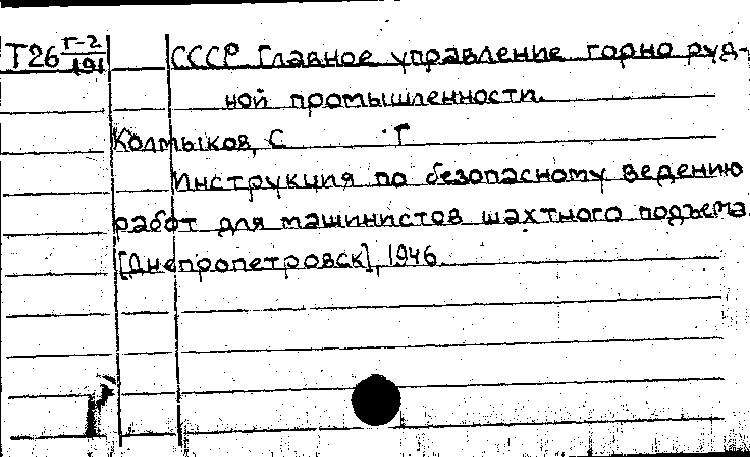 Т26 Г-2/191 СССР Главное управление горно руд-
ной промышленности.
Колтыков, С Г
Инструкция по безопасному ведению
работ для машинистов шахтного подъема.
[Днепропетровск], 1946.